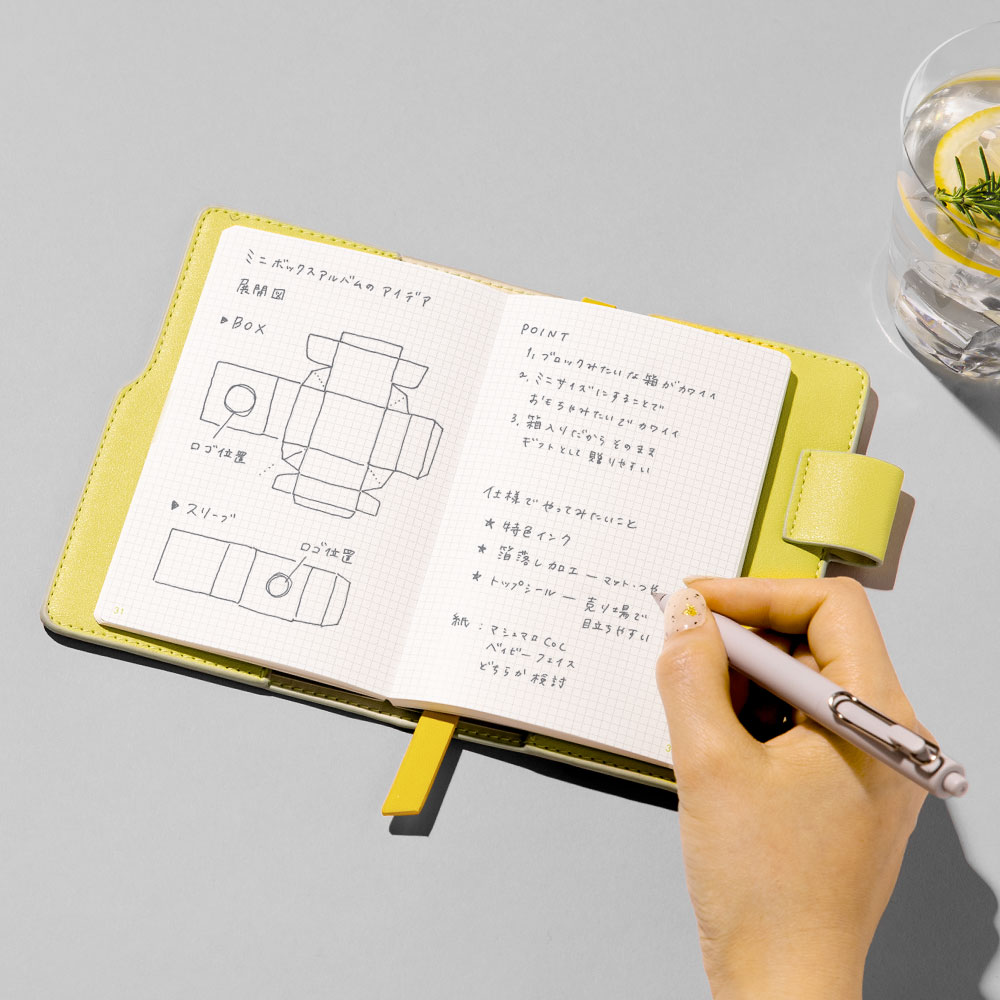 ミニボックスアルバムの アイデア
展開図
▶BOX
ロゴ位置
▶スリーブ
ロゴ位置
31
POINT
1. ブロックみたいな箱がカワイイ
2. ミニサイズにすることで
おもちゃみたいで カワイイ
3. 箱入りだから そのまま
ギフトとして 贈りやすい
仕様で やってみたいこと
★ 特色インク
★ 箔落し加工 — マット・つや
★ トップシール — 売り場で
目立ちやすい
紙 : マシュマロCoC
ベイビーフェイス
どちらか 検討